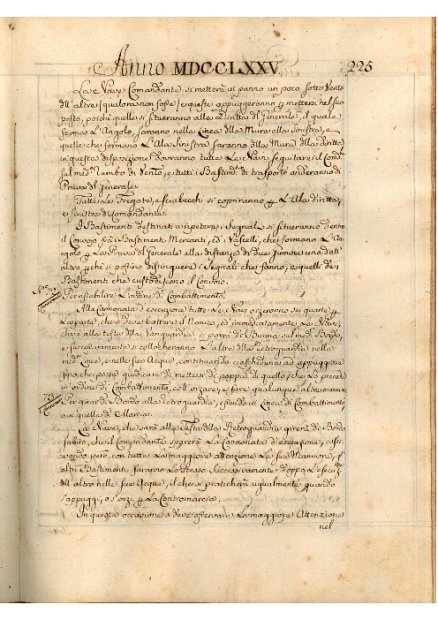 Anno MDCCLXXV. 225
La Nave Comandante si metterà un panno un poco sotto Vento
all'altre (qualora non fosse) e queste appuggeranno a mettersi nel suo
posto, poiché quelle si situeranno alla Diritta del Generale, il quale
ferma L'Angolo, saranno nella Linea della Mura alla sinistra, e
quelle che formano L'Ala sinistra saranno della Mura alla diritta,
in questa disposizione dovranno tutte Le Navi seguitare il Comte
sul med.mo Rumbo di Vento, e tutti i Bastim.ti di trasporto anderanno di
Prua del Generale.
Tutte le Fregate, e sciabecchi si copriranno L'Ala diritta,
e sinistra del Comandante.
I Bastimenti destinati a ripetere i segnali si situeranno dentro
il Convojo frà i Bastimenti Mercanti, ed i Vascelli, che formano L'An-
golo Prua del Generale alla distanza di due Junate una dall'
altra che si possino distinguere i segnali che fanno, e quelle dei
Bastimenti che custodiscono il Convojo.
Per ristabilire L'ordine di Combattimento.
Alla esecuzione tutte Le Navi orzeranno sei quarte
La parte che devesi battere il Nemico, ed immediatamente La Nave,
che è alla testa della Vanguardia si porrà di Bolina sul med.mo Bordo,
e successivamente si collocheranno L'altre della Retroguardia nella
Linea, e nelle sue Acque, continuando ciascheduna ad appuggiare
sin a che possa giudicare di mettersi di poppa di quella che La precede
in ordine di Combattimento, o d'orzare, e fare qualunque
Per girare di Bordo alla Retroguardia, essendo in Linea di Combattimento
o in quella di Marcia.
La Nave, che sarà alla Testa della Retroguardia girerà di Bordo
subito, che il Comandante sparerà La Cannonata d'esecuzione,
però con tutta La maggiore attenzione La sua Manovra, e
altri Bastimenti faranno Lo stesso successivamente doppo
all'altro nelle sue Acque, il che si praticherà ugualmente quando
s'appuggi, o s'orzi La Contromarcia.
In questa occasione si deve osservare La maggiore Attenzione
nel